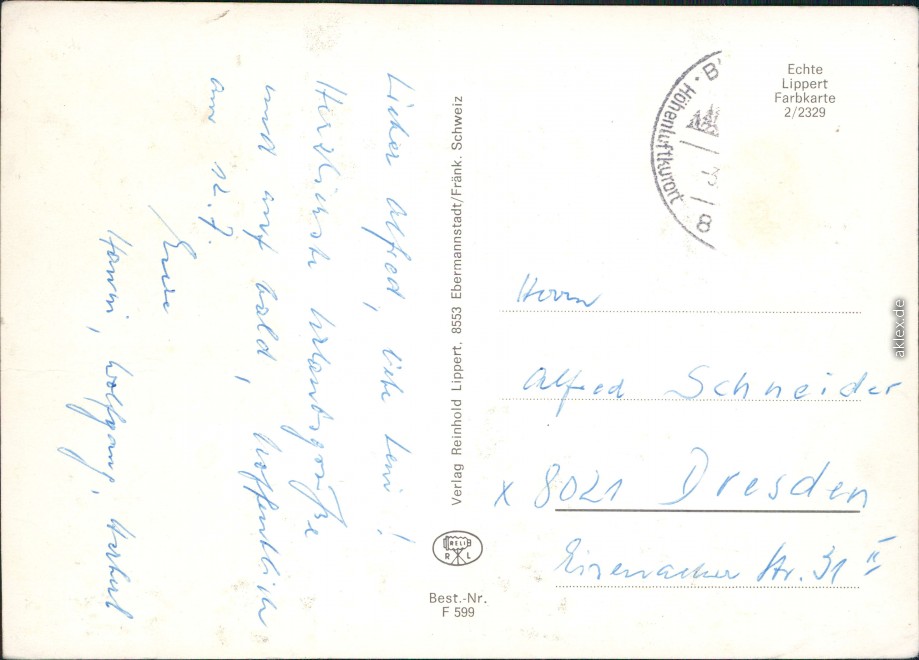 Lieber Alfred, liebe Leni!
Herzlichste Urlaubsgrüße
und auf bald, hoffentlich
am 12.7.
Eure
Hanni, Wolfgang, Herbert
Verlag Reinhold Lippert, 8553 Ebermannstadt/Fränk. Schweiz
RELI
R L
Best.-Nr.
F 599
Echte
Lippert
Farbkarte
2/2329
Höhenluftkurort · B
8
Herrn
Alfred Schneider
X 8021 Dresden
Eisenacher Str. 31 II
aklex.de